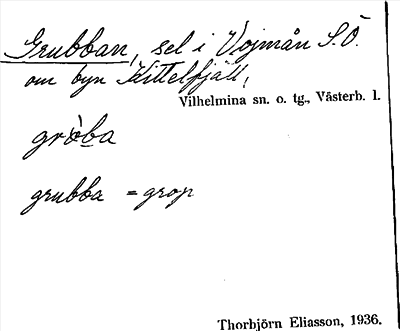 Grubban, sel i Vojmån S.Ö.
om byn Kittelfjäll,
Vilhelmina sn. o. tg., Västerb. l.
gròba
grubba = grop
Thorbjörn Eliasson, 1936.